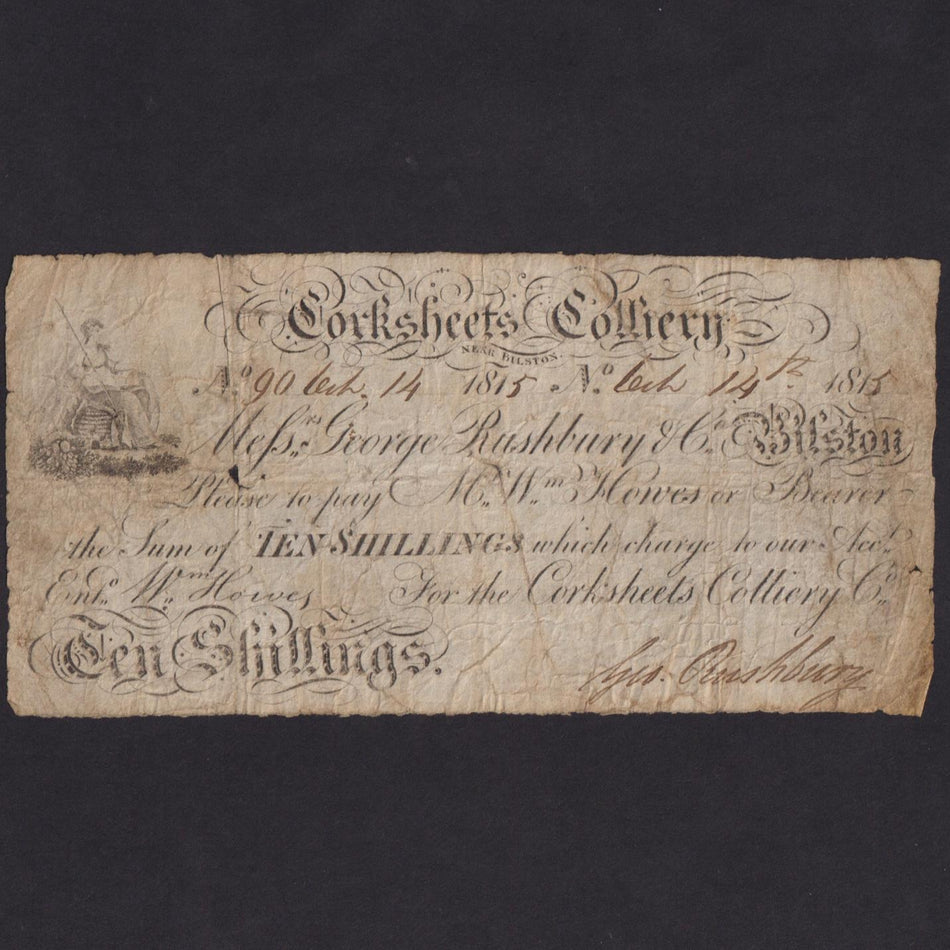 Corksheets Colliery
NEAR BILSTON.
No. 90 Octr. 14 1815 No. Octr 14th 1815
Messrs. George Rushbury & Co. Bilston
Please to pay Mr. Wm. Howes or Bearer
the Sum of TEN SHILLINGS which charge to our Acct.
Entd. Wm. Howes For the Corksheets Colliery Co.
Ten Shillings.
Geo. Rushbury